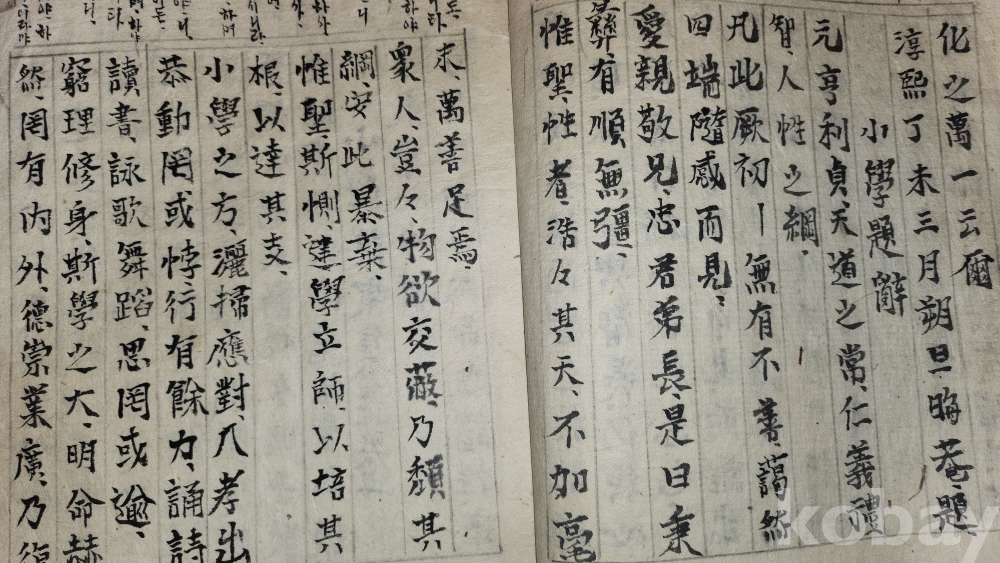 化之萬一云爾
淳熙丁未三月朔旦晦菴、題、
小學題辭
元亨利貞、天道之常、仁義禮
智、人性之綱、
凡此厥初无有不善藹然
四端隨感而見、
愛親敬兄忠君弟長、是曰秉
彛、有順無彊、
惟聖、性者、浩々其天、不加毫
末、萬善足焉、
衆人、豈々、物欲交蔽、乃頹其
綱、安此暴棄、
惟聖、斯惻、建學立師、以培其
根、以達其支、
小學之方、灑掃應對、入孝出
恭動罔或悖、行有餘力、誦詩
讀書、詠歌舞蹈、思罔或逾、
窮理修身、斯學之大、明命赫
然、罔有內外、德崇業廣、乃復
kobay